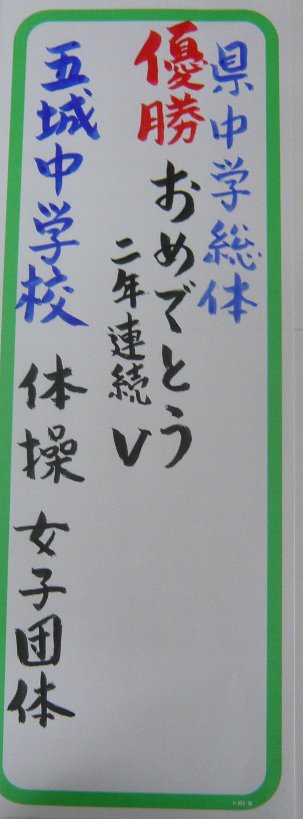 県中学総体
優勝おめでとう
二年連続V
五城中学校 体操 女子団体